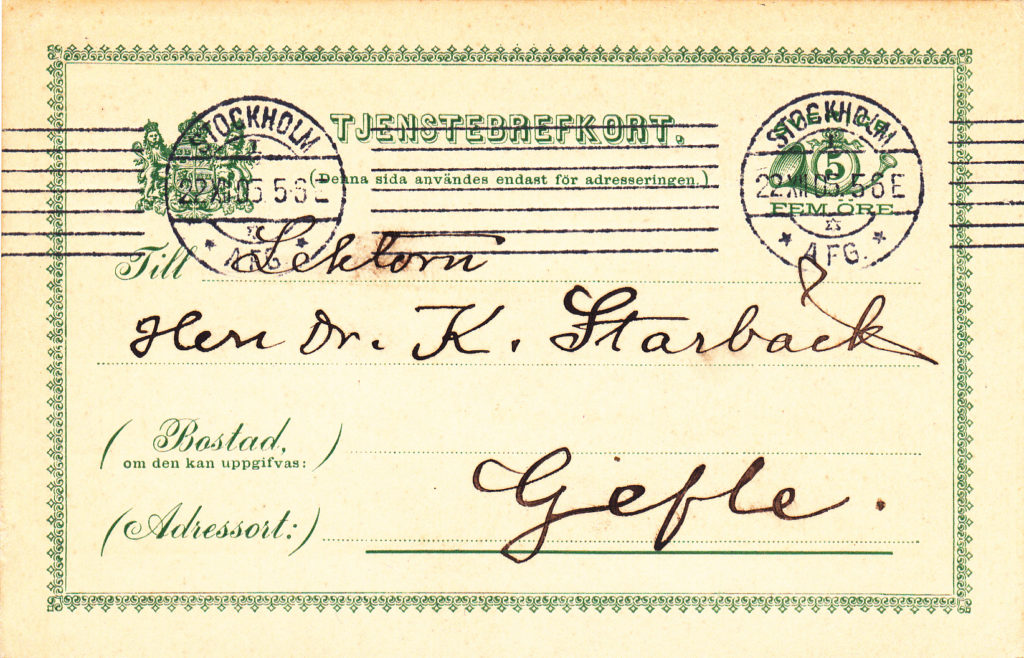 TJENSTEBREFKORT.
(Denna sida användes endast för adresseringen.)
STOCKHOLM
1
22 XII 05 5-6 E
AFG.
STOCKHOLM
1
22 XII 05 5-6 E
AFG.
5
FEM ÖRE
Till Lektorn
Herr Dr. K. Starbäck
(Bostad,
om den kan uppgifvas:)
(Adressort:) Gefle.